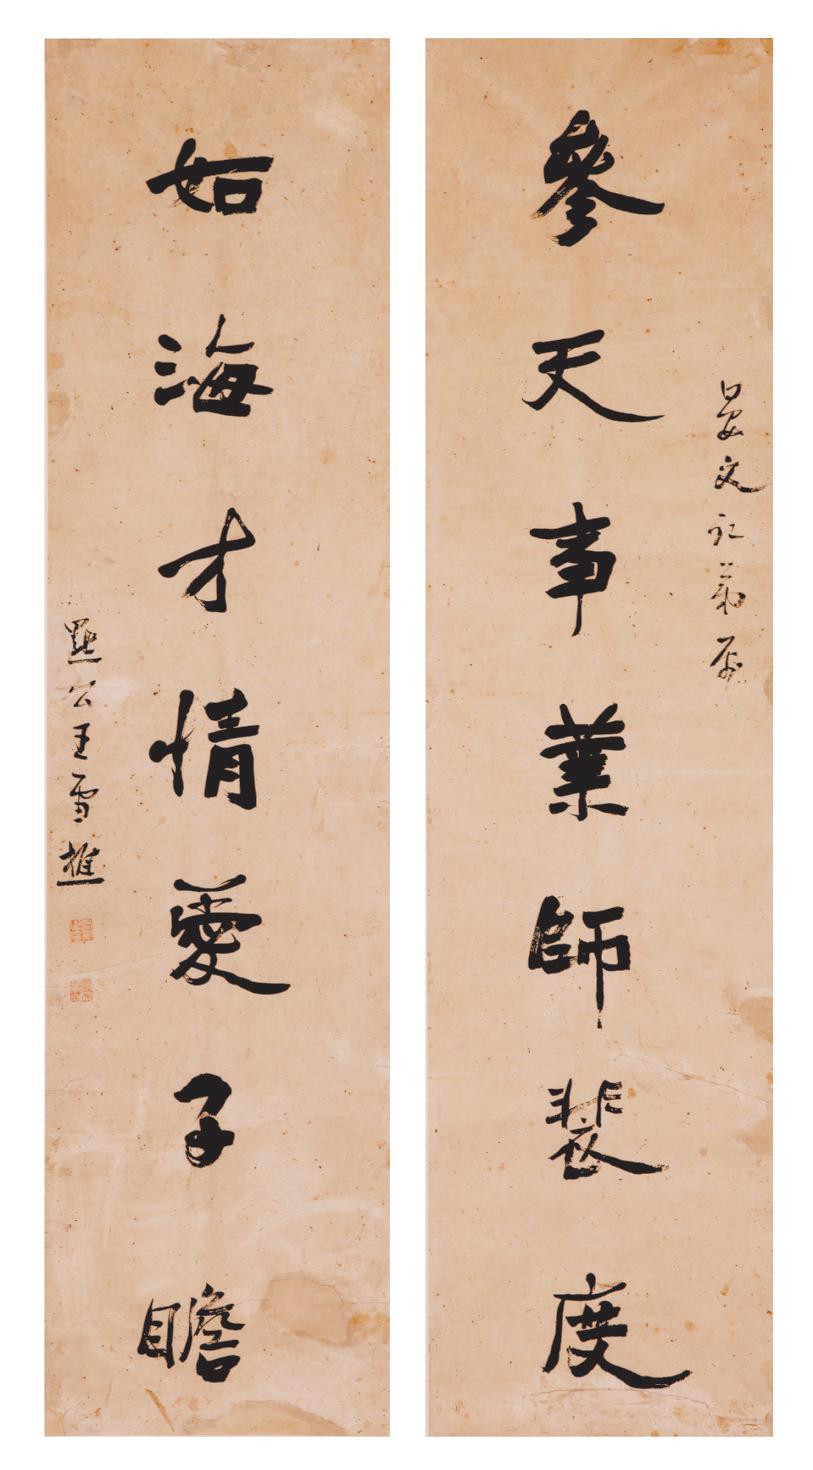 晏文記翁屬
參天事業師裴度
如海才情愛子瞻
黙公王雪樵